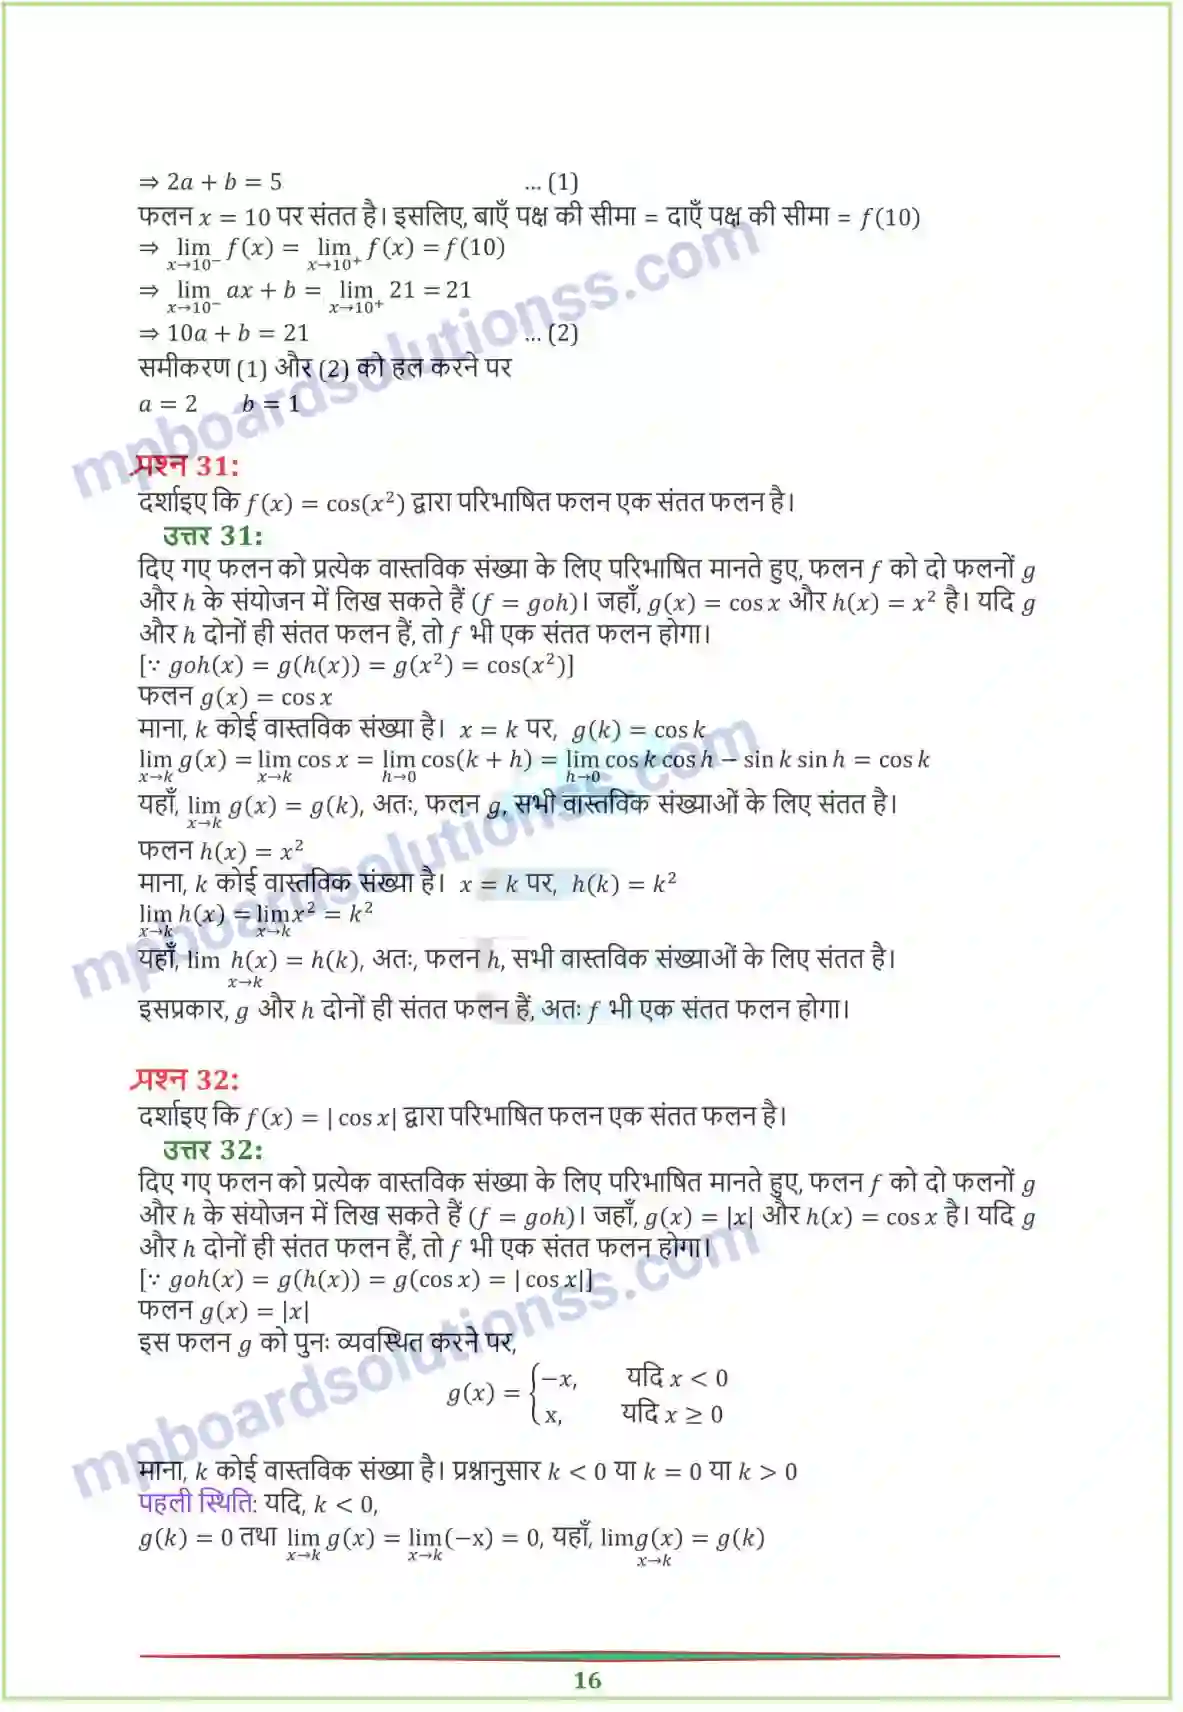 ⇒ 2a + b = 5 ... (1)
फलन x = 10 पर संतत है। इसलिए, बाएँ पक्ष की सीमा = दाएँ पक्ष की सीमा = f(10)
⇒ lim x→10⁻ f(x) = lim x→10⁺ f(x) = f(10)
⇒ lim x→10⁻ ax + b = lim x→10⁺ 21 = 21
⇒ 10a + b = 21 ... (2)
समीकरण (1) और (2) को हल करने पर
a = 2 b = 1
प्रश्न 31:
दर्शाइए कि f(x) = cos(x²) द्वारा परिभाषित फलन एक संतत फलन है।
उत्तर 31:
दिए गए फलन को प्रत्येक वास्तविक संख्या के लिए परिभाषित मानते हुए, फलन f को दो फलनों g
और h के संयोजन में लिख सकते हैं (f = goh)। जहाँ, g(x) = cos x और h(x) = x² है। यदि g
और h दोनों ही संतत फलन हैं, तो f भी एक संतत फलन होगा।
[∵ goh(x) = g(h(x)) = g(x²) = cos(x²)]
फलन g(x) = cos x
माना, k कोई वास्तविक संख्या है। x = k पर, g(k) = cos k
lim x→k g(x) = lim x→k cos x = lim h→0 cos(k + h) = lim h→0 cos k cos h − sin k sin h = cos k
यहाँ, lim x→k g(x) = g(k), अतः, फलन g, सभी वास्तविक संख्याओं के लिए संतत है।
फलन h(x) = x²
माना, k कोई वास्तविक संख्या है। x = k पर, h(k) = k²
lim x→k h(x) = lim x→k x² = k²
यहाँ, lim x→k h(x) = h(k), अतः, फलन h, सभी वास्तविक संख्याओं के लिए संतत है।
इसप्रकार, g और h दोनों ही संतत फलन हैं, अतः f भी एक संतत फलन होगा।
प्रश्न 32:
दर्शाइए कि f(x) = | cos x| द्वारा परिभाषित फलन एक संतत फलन है।
उत्तर 32:
दिए गए फलन को प्रत्येक वास्तविक संख्या के लिए परिभाषित मानते हुए, फलन f को दो फलनों g
और h के संयोजन में लिख सकते हैं (f = goh)। जहाँ, g(x) = |x| और h(x) = cos x है। यदि g
और h दोनों ही संतत फलन हैं, तो f भी एक संतत फलन होगा।
[∵ goh(x) = g(h(x)) = g(cos x) = | cos x|]
फलन g(x) = |x|
इस फलन g को पुनः व्यवस्थित करने पर,
g(x) = { −x, यदि x < 0
x, यदि x ≥ 0
माना, k कोई वास्तविक संख्या है। प्रश्नानुसार k < 0 या k = 0 या k > 0
पहली स्थिति: यदि, k < 0,
g(k) = 0 तथा lim x→k g(x) = lim x→k (−x) = 0, यहाँ, lim x→k g(x) = g(k)
16
mpboardsolutionss.com
mpboardsolutionss.com
mpboardsolutionss.com